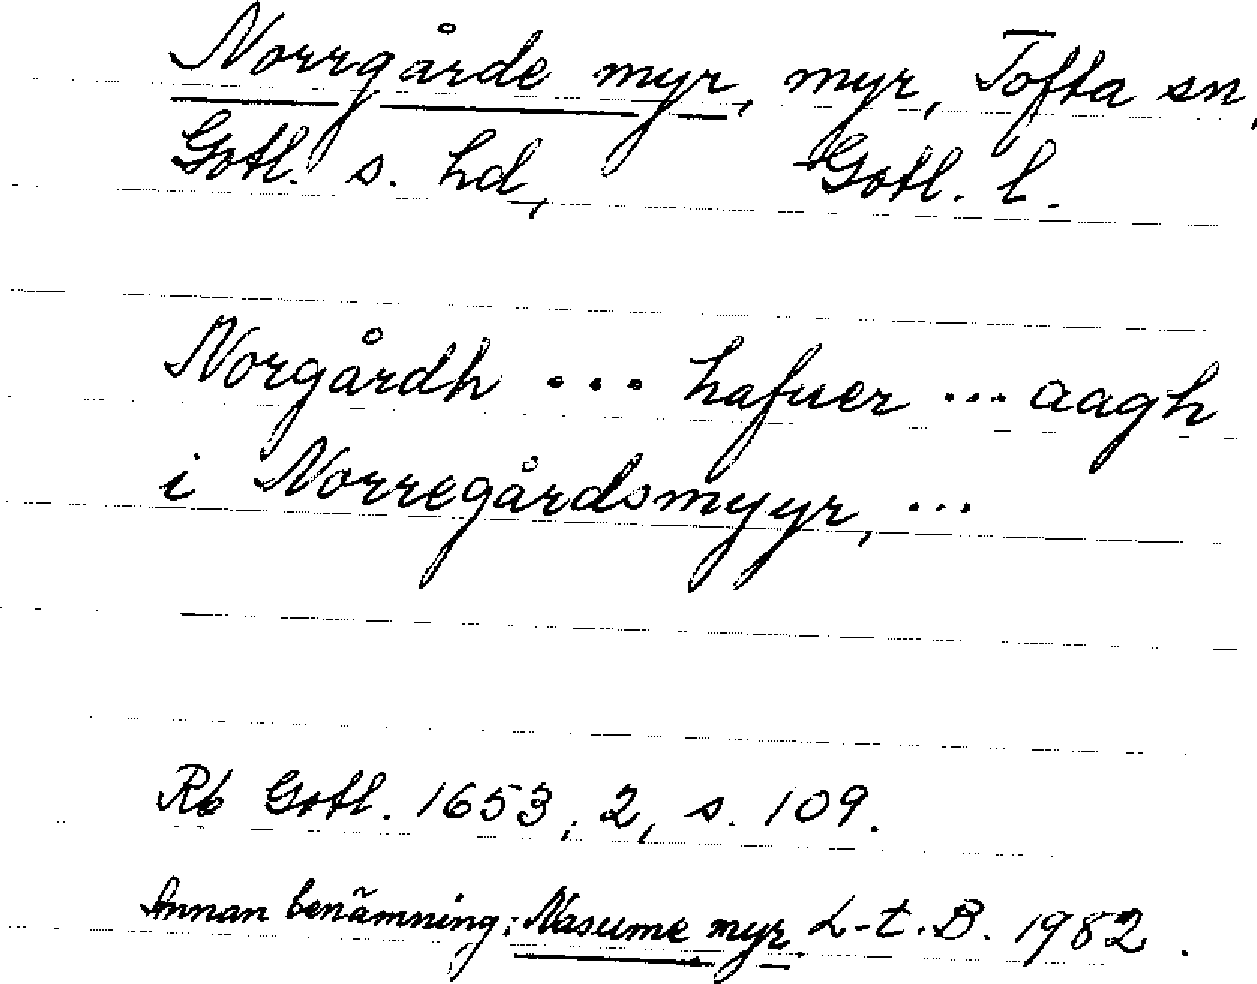 Norrgårde myr, myr, Tofta sn,
Gotl. s. hd, Gotl. l.
Norgårdh ... hafuer ... aagh
i Norregårdsmyyr, ...
Rb Gotl. 1653, 2, s. 109.
Annan benämning: Nasume myr. L-t. B. 1982.